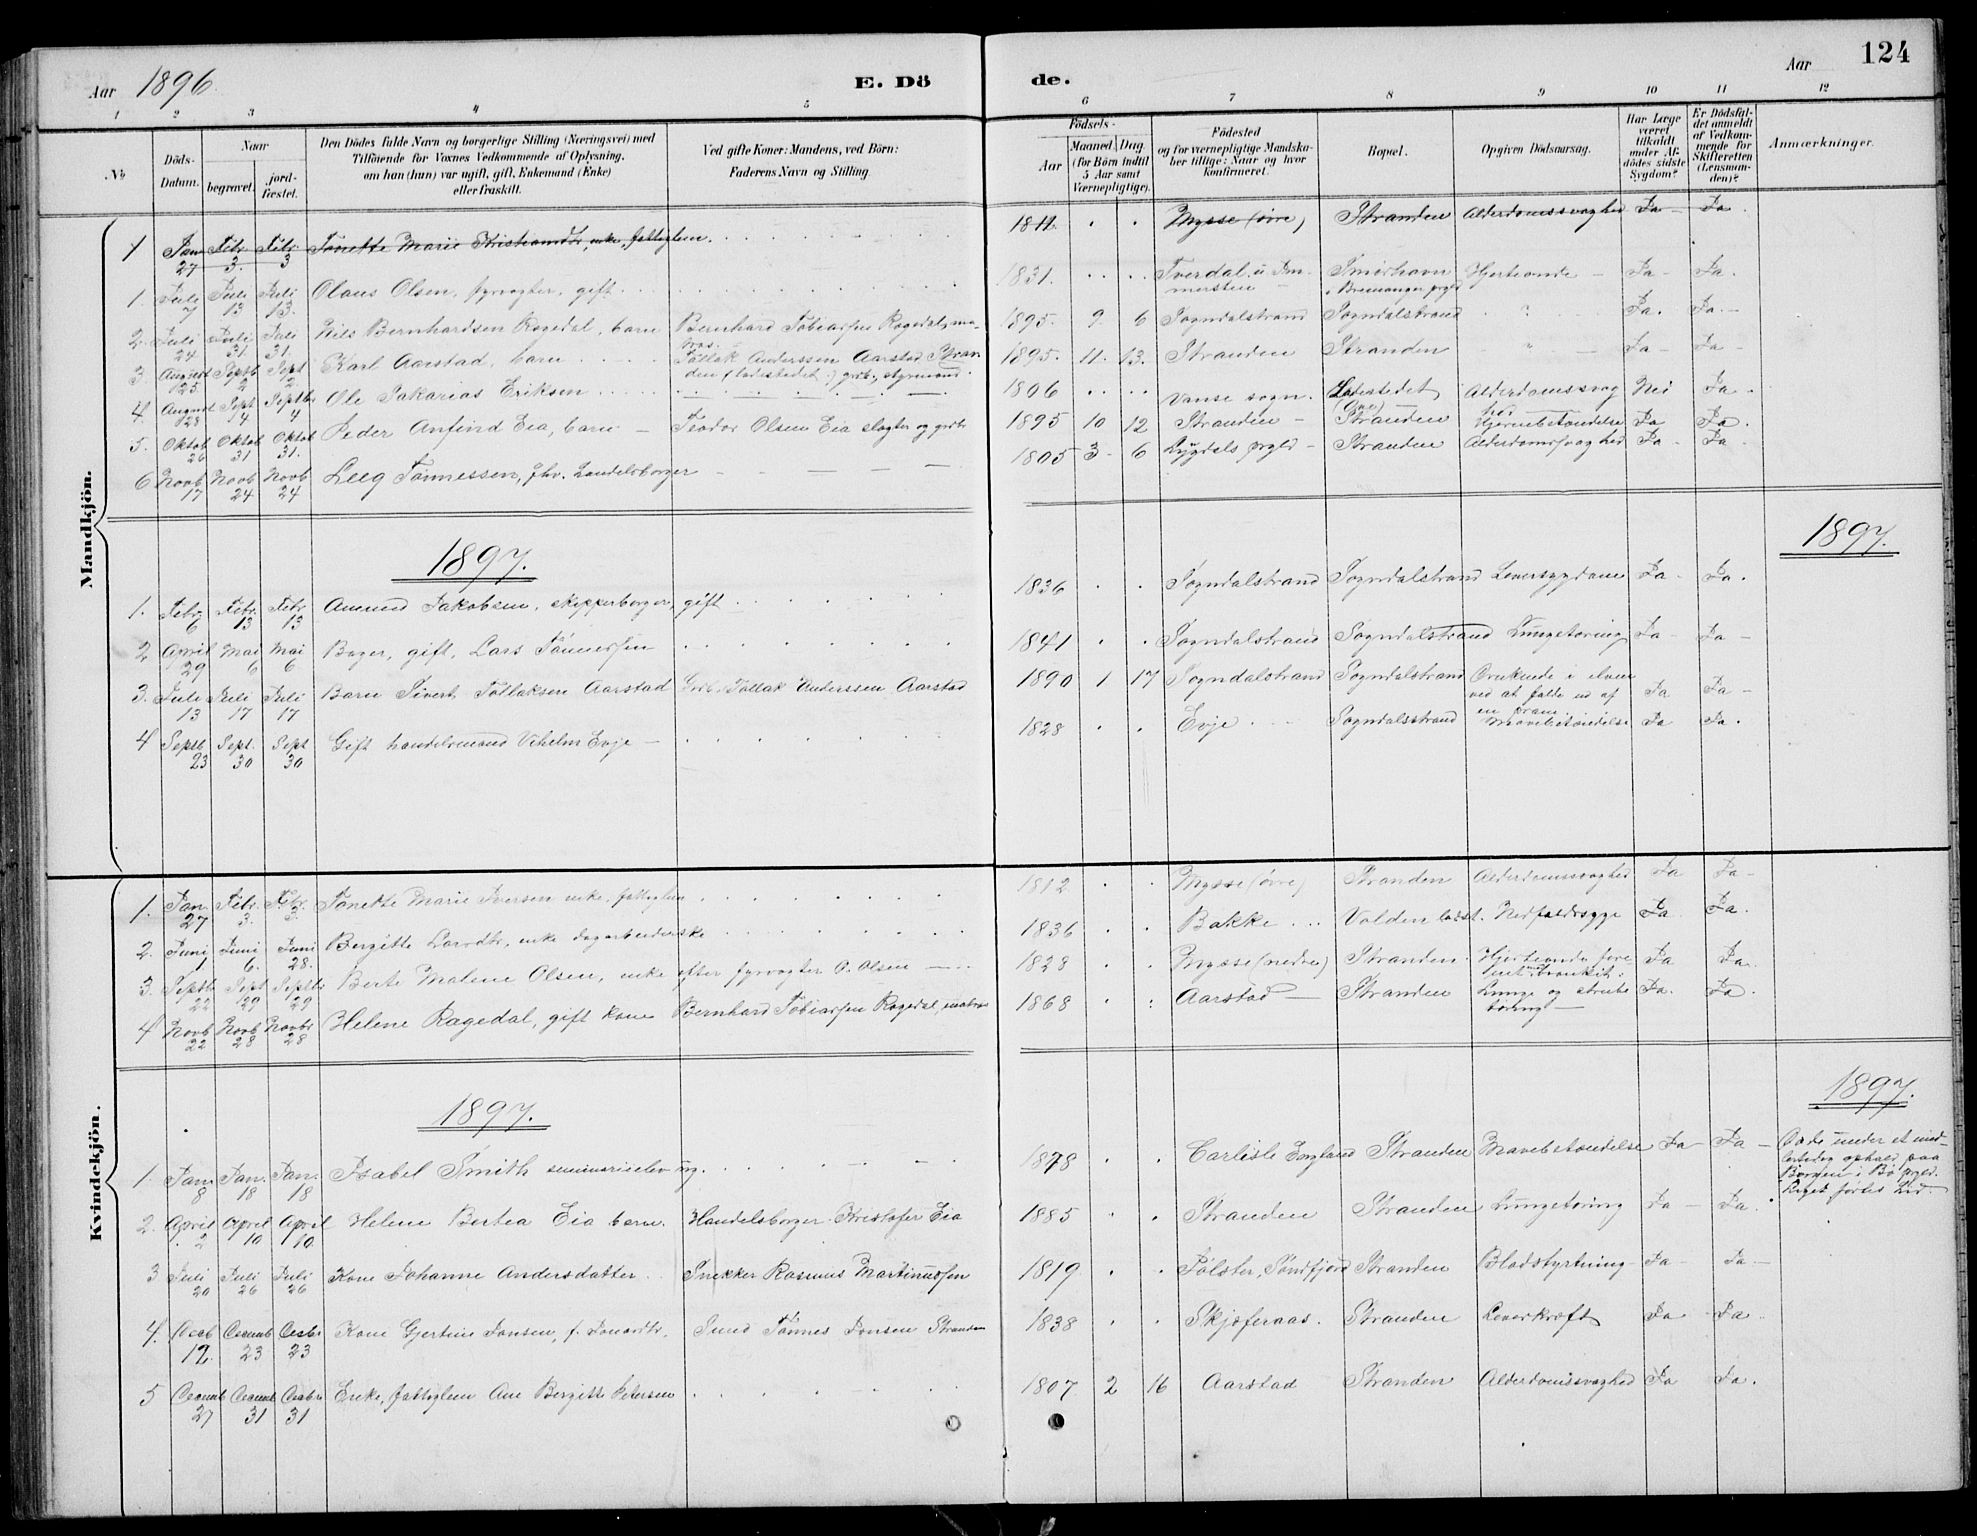 Aar 1896. E. Dö de. Aar 124
1 2 3 4 5 6 7 8 9 10 11 12
No
Döds-Datum.
Naar
begravet.
jordfæstet.
Den Dödes fulde Navn og borgerlige Stilling (Næringsvei) med
Tilföiende for Voxnes Vedkommende af Oplysning,
om han (hun) var ugift, gift, Enkemand (Enke)
eller fraskilt.
Ved gifte Koner: Mandens, ved Börn:
Faderens Navn og Stilling.
Födsels-
Aar
Maaned. Dag.
(for Börn indtil
5 Aar samt
Værnepligtige).
Födested
og for værnepligtige Mandska-
ber tillige: Naar og hvor
konfirmeret.
Bopæl.
Opgiven Dödsaarsag.
Har Læge
været
tilkaldt
under Af-
dödes sidste
Sygdom?
Er Dödsfal-
det anmeldt
af Vedkom-
mende for
Skifteretten
(Lensman-
den)?
Anmærkninger.
Mandkjön.
1 Jan 27 Febr. 3. Febr 3 Tonette Marie enke, fattiglem. 1811. Mysse (övre) Stranden Alderdomssvaghed Ja - Ja.
1. Juli 7 Juli 13 Juli 13. Olaus Olsen, fyrvogter, gift 1831. Tverdal Smörhavn Bremanger prgld Hjerteonde - Ja - Ja.
2. Juli 24 Juli 31. Juli 31. Nils Bernhardsen Ragedal, barn Bernhard Tobiassen Ragedal, matros. 1895. 9 6 Sogndalstrand Sogndalstrand " Ja. Ja. -
3. August 25. Septb 2 Sept 2. Karl Aarstad, barn Tollak Anderssen Aarstad Stranden (ladestedet) grdbr, styrmand. 1895. 11. 13. Stranden Stranden " Ja - Ja -
4. August 28 Sept 4 Septbr 4 Ole Sakarias Eriksen 1806 Vanse sogn. Ladestedet Alderdomssvaghed Nei Ja.
5. Oktob 26 Oktob 31 Oktob 31. Peder Anfind Eia, barn - Teodor Olsen Eia slagter og grdbr 1895 10 12 Stranden - Stranden Hjernebetændelse Ja Ja.
6 Novb 17 Novb 24 Novb 24 Leeg Tönnessen, fhv. Handelsborger 1805 3 - 6 Lygdals prgld - Stranden Alderdomssvaghed Ja - Ja -
1897. 1897.
1. Febr 6 Febr. 13 Febr 13 Amund Jakobsen, skipperborger, gift 1836 Sogndalstrand Sogndalstrand Leversygdom Ja - Ja.
2 April 29 Mai 6 Mai 6 Bager, gift, Lars Tönnessen 1841 Sogndalstrand Sogndalstrand Lungetæring Ja - Ja -
3. Juli 13 Juli 17 Juli 17 Barn Sivert Tollaksen Aarstad Grdbr. Tollak Anderssen Aarstad 1890 1 17 Sogndalstrand Sogndalstrand Druknede i elven ved at falde ud af en pram. Ja Ja -
4 Septb 23 Sept. 30 Sept 30 Gift handelsmand Vilhelm Evje - 1828 Evje Sogndalsstrand Mavebetændelse Ja Ja.
Kvindekjön.
1. Jan. 27 Febr. 3. Febr. 3. Tonette Marie Iversen enke, fattiglem 1812. Mysse (övre) Stranden Alderdomssvaghed Ja Ja -
2. Juni 1 Juni 6. Juni 28. Bergitte Larsdtr, enke dagarbeiderske 1836 Bakke Valden ladst. Nedfaldssyge Ja Ja.
3. Septb 22 Sept 29 Septbr 29 Berte Malene Olsen, enke efter fyrvogter O. Olsen 1828 Mysse (nedre) Stranden. Hjerteonde forenet med bronkit. Ja Ja.
4 Novb 22 Novb 28 Novbr 28 Helene Ragedal, gift kone Bernhard Tobiassen Ragedal, matros 1868 Aarstad - Stranden Lunge og strubetæring - Ja. Ja.
1897. 1897.
1. Jan. 8 Jan. 18 Jan. 18 Isabel Smith seminarieelev ug. 1878 Carlisle England Stranden Mavebetændelse Ja - Ja - Döde under et midlertidig ophold paa i Bö prgld. Liget førtes hid.
2. April 2 April 10 April 10 Helene Bertea Eia barn. Handelsborger Kristofer Eia 1885 Stranden Stranden Lungetæring Ja - Ja.
3 Juli 20 Juli 26 Juli 26 Kone Johanne Andersdatter. Snekker Rasmus Martinussen 1819 Jølster, Söndfjord Stranden Blodstyrtning - Ja - Ja -
4. Decb 19. Decemb 23 Decbr 23 Kone Gjertine Jonsen, f. Smed Tönnes Jonsen Stranden 1838 Skjøferaas. Stranden Leverkræft Ja - Ja.
5 Decemb 27 Decemb 31 Decbr 31 Enke, fattiglem Ane Bergitte Petersen 1807 2 16 Aarstad Stranden Alderdomssvaghed Ja Ja.